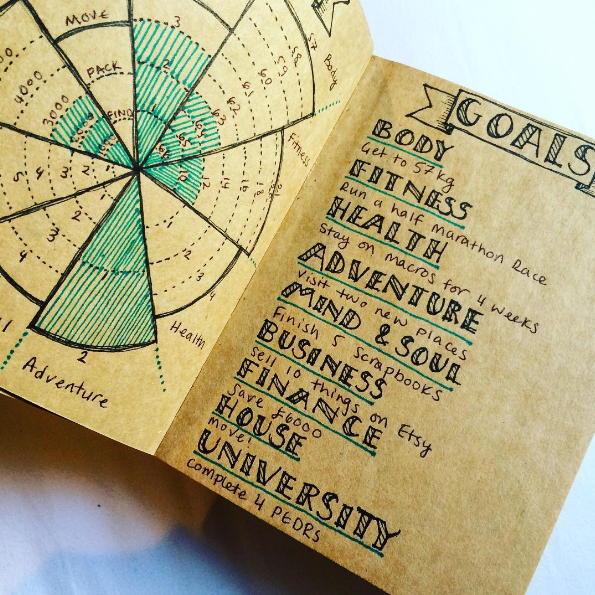 MOVE
PACK
FIND
3
2
1
57
58
59
60
61
62
63
Body
4000
3000
Fitness
10
12
14
16
18
21
5
4
3
2
1
1
2
3
4
1
2
3
4
Health
2
Adventure
GOALS
BODY
Get to 57kg
FITNESS
Run a half marathon race
HEALTH
Stay on macros for 4 weeks
ADVENTURE
Visit two new places
MIND & SOUL
Finish 5 scrapbooks
BUSINESS
Sell 10 things on Etsy
FINANCE
Save £6000
HOUSE
move!
UNIVERSITY
complete 4 PEDRS